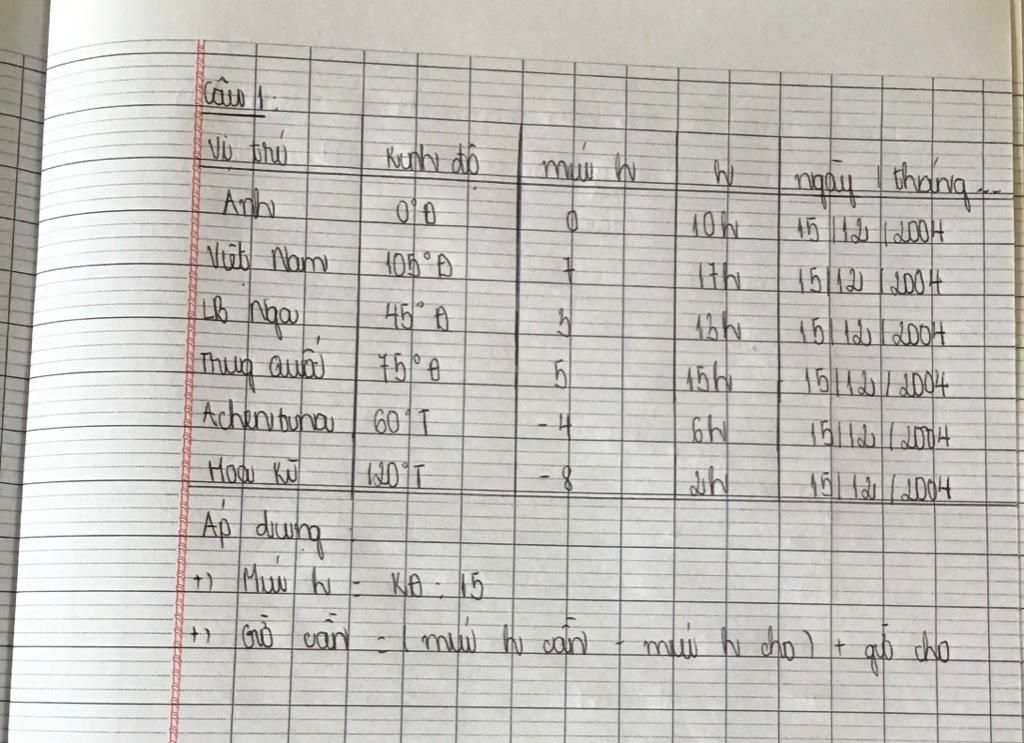 Câu 1.
Vị trí Kinh độ múi h h ngày / tháng...
Anh 0°Đ 0 10h 15/12/2004
Việt Nam 105°Đ 7 17h 15/12/2004
LB Nga 45°Đ 3 13h 15/12/2004
Trung Quốc 75°Đ 5 15h 15/12/2004
Achentina 60°T -4 6h 15/12/2004
Hoa Kì 120°T -8 2h 15/12/2004
Áp dụng
+) Múi h = KĐ : 15
+) Giờ cần = (múi h cần - múi h cho) + giờ cho